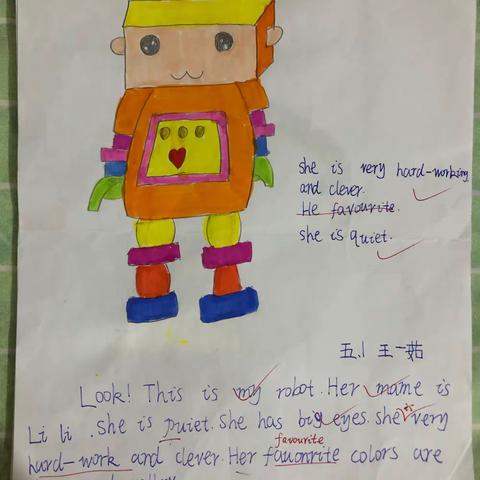 she is very hard-working
and clever.
He favourite.
she is quiet.
五.1 王一茹
Look! This is my robot. Her mame is
Li li . She is puiet. She has big eyes. She is very
favourite
hard-work and clever. Her fauonrite colors are